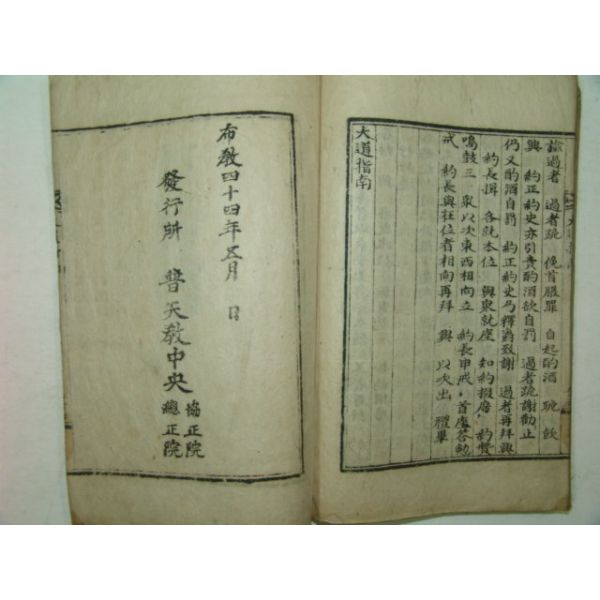 諭過者 過者跪 俛首服罪 自起酌酒 跪飲
興 約正約史亦引責酌酒欲自罰 過者跪謝勸止
仍又酌酒自罰 約正約史乃釋爵致謝 過者再拜興
約長揖 各就本位 與衆就座 知約掇席 約贊
鳴鼓三 衆以次東西相向立 約長申戒 首座答勉
戒 約長與在位者相向再拜 興 以次出 禮畢
大道指南
布敎四十四年五月 日
發行所 普天敎中央
協正院
總正院